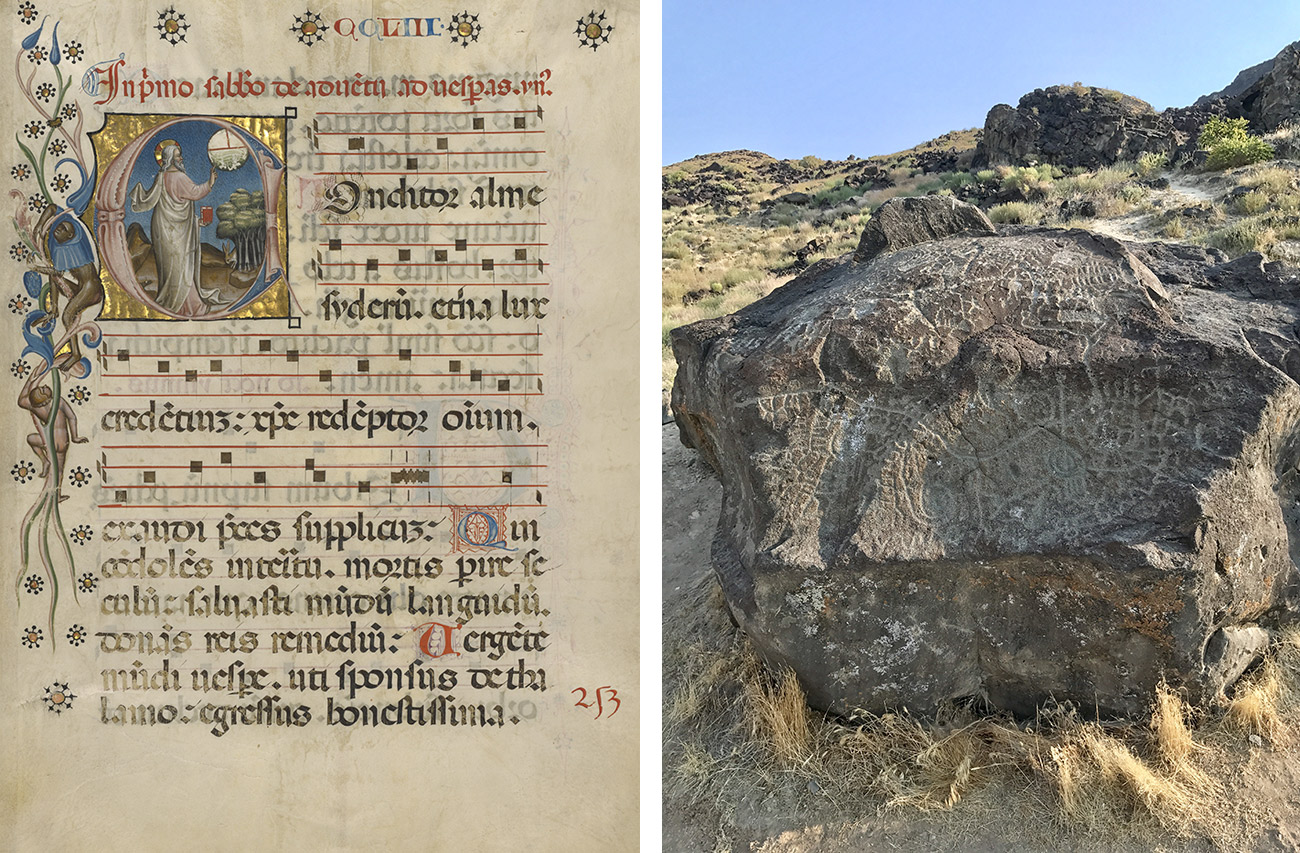 CCLIII.
In p̄mo sabb̄o de aduētu ad uesp̄as. yn̄.
Onditor alme
syderū. etn̄a lux
credētiuȝ: xp̄e redēptor oīum.
exaudi p̄ces suppliciuȝ: Qui
cōdolēs interitu. mortis p̄ire se
culū: saluasti mūdū languidū.
donās reis remediū: Uergēte
mūdi uesp̄e. uti sponsus de tha
lamo: egressus honestissima.
253